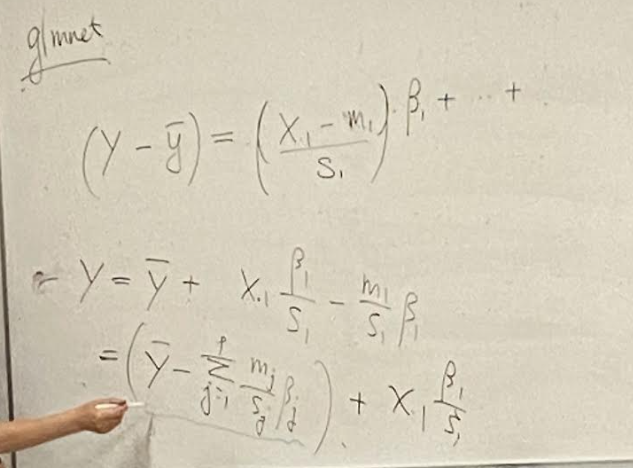 glmnet
(Y - ȳ) = ((X.₁ - m₁) / S₁) · β₁ + ... +
Y = ȳ + X.₁ β₁/S₁ - m₁/S₁ β₁
= (ȳ - Σ_{j=1}^{p} m_j/S_j β_j) + X.₁ β₁/S₁